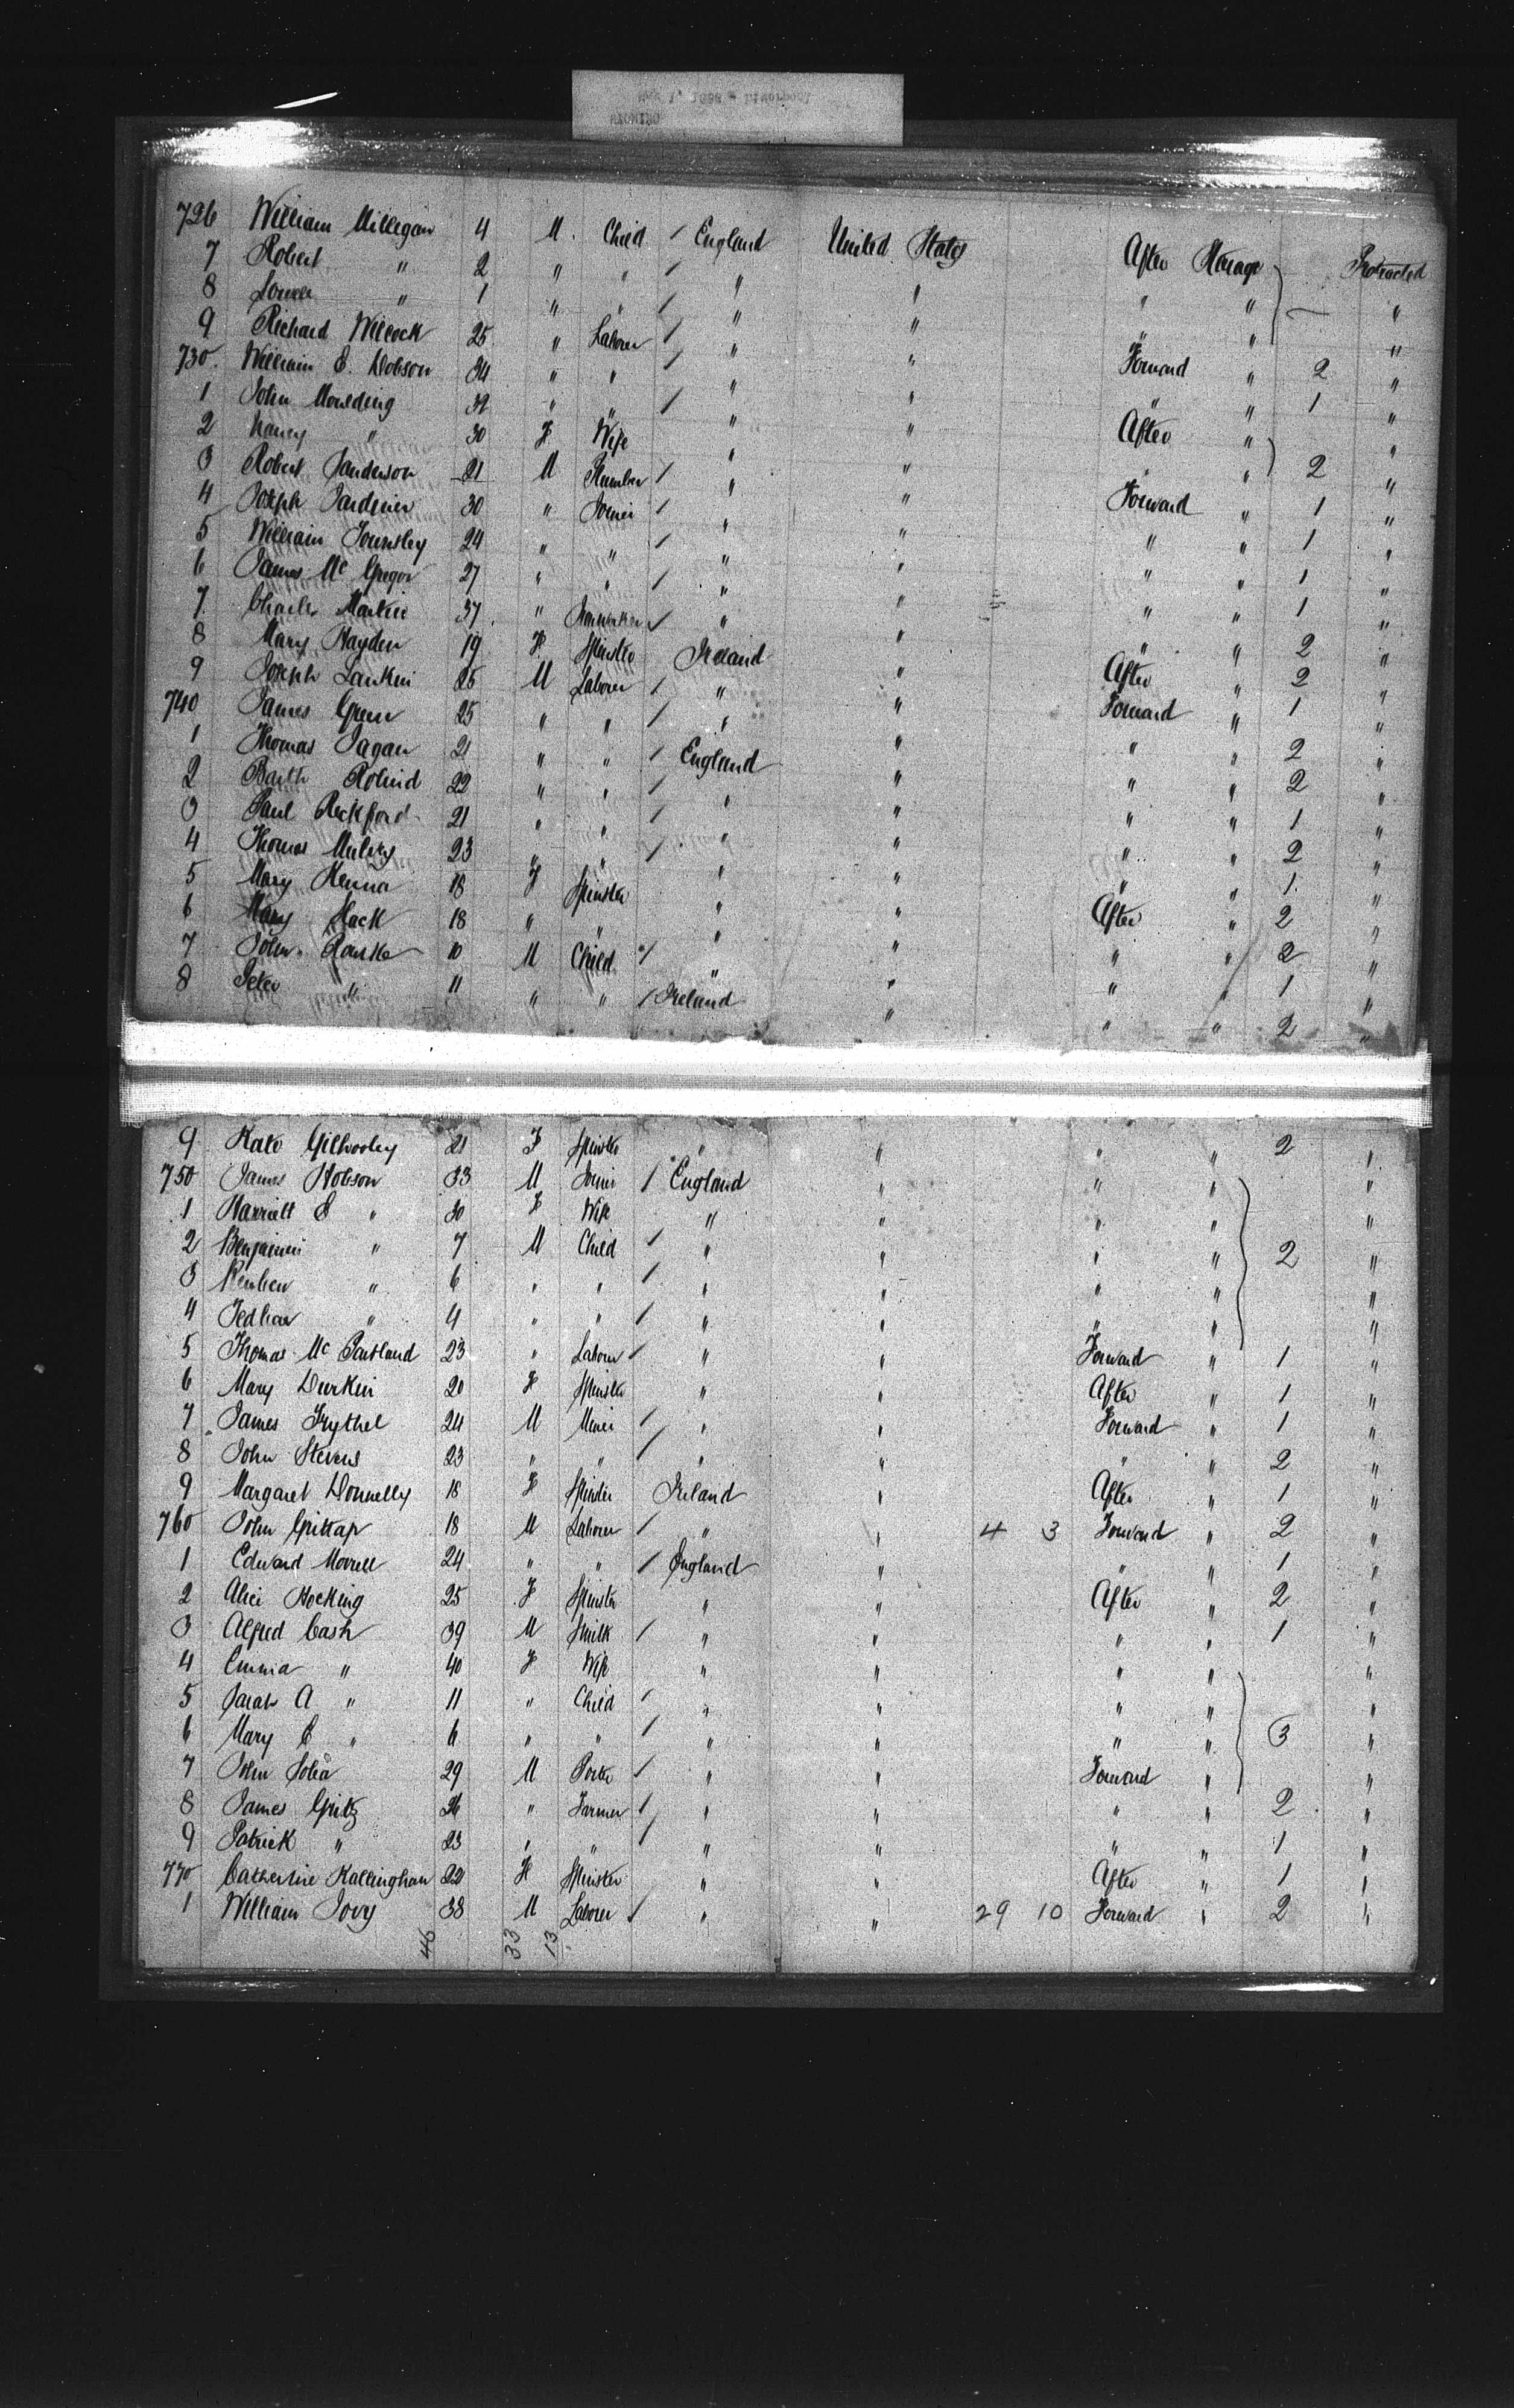 726 William Milligan 4 M. Child / England United States After Steerage Protracted
7 Robert " 2 " " / " " " " "
8 " 1 " " / " " " " "
9 Richard Wilcock 25 " Laborer / " " Forward " 2 "
730. William E. Dobson 34 " " / " " " " 1 "
1 John Moulding 32 " " / " " After " "
2 Nancy " 30 F Wife " " " " 2 "
3 Robert Sanderson 21 M Plumber / " " Forward " 1 "
4 Joseph Gardiner 30 " Joiner / " " " " 1 "
5 William Townsley 24 " " / " " " " 1 "
6 James Mc Gregor 27 " " / " " " " 1 "
7 Charles Martin 37 " Ironworker / " " " " 2 "
8 Mary Hayden 19 F Spinster Ireland " After " 2 "
9 Joseph Larkin 25 M Laborer / " " Forward " 1 "
740 James Green 25 " " / " " " " 2 "
1 Thomas Fagan 21 " " / England " " " 2 "
2 Barth 22 " " / " " " " 1 "
3 Paul Pickford 21 " " / " " " " 2 "
4 Thomas 23 " " / " " " " 1 "
5 Mary Kenna 18 F Spinster " " After " 2 "
6 Mary Slack 18 " " " " " " 2 "
7 John Rourke 10 M Child / " " " " 1 "
8 Peter " 11 " " / Ireland " " " 2 "
9 Kate Gilhooley 21 F Spinster " " " " 2 "
750 James Hobson 33 M Joiner / England " " " "
1 Harriett E " 30 F Wife " " " " "
2 Benjamin " 7 M Child / " " " " 2 "
3 Reuben " 6 " " / " " " " "
4 " 4 " " / " " " " "
5 Thomas Mc Partland 23 " Laborer / " " Forward " 1 "
6 Mary Durkin 20 F Spinster " " After " 1 "
7 James 24 M Miner / " " Forward " 1 "
8 John Stevens 23 " " / " " " " 2 "
9 Margaret Donnelly 18 F Spinster Ireland " After " 1 "
760 John 18 M Laborer / " " 4 3 Forward " 2 "
1 Edward Morrell 24 " " / England " " " 1 "
2 Alice Hocking 25 F Spinster " " After " 2 "
3 Alfred Cash 39 M Smith / " " " " 1 "
4 Emma " 40 F Wife " " " " "
5 Sarah A " 11 " Child / " " " " "
6 Mary E " 6 " " / " " " " 3 "
7 John 29 M Porter / " " Forward " "
8 James 26 " Farmer / " " " " 2 "
9 Patrick " 23 " " / " " " " 1 "
770 Catherine Kallingham 22 F Spinster " " After " 1 "
1 William 38 M Laborer / " " 29 10 Forward " 2 "
46 33 13